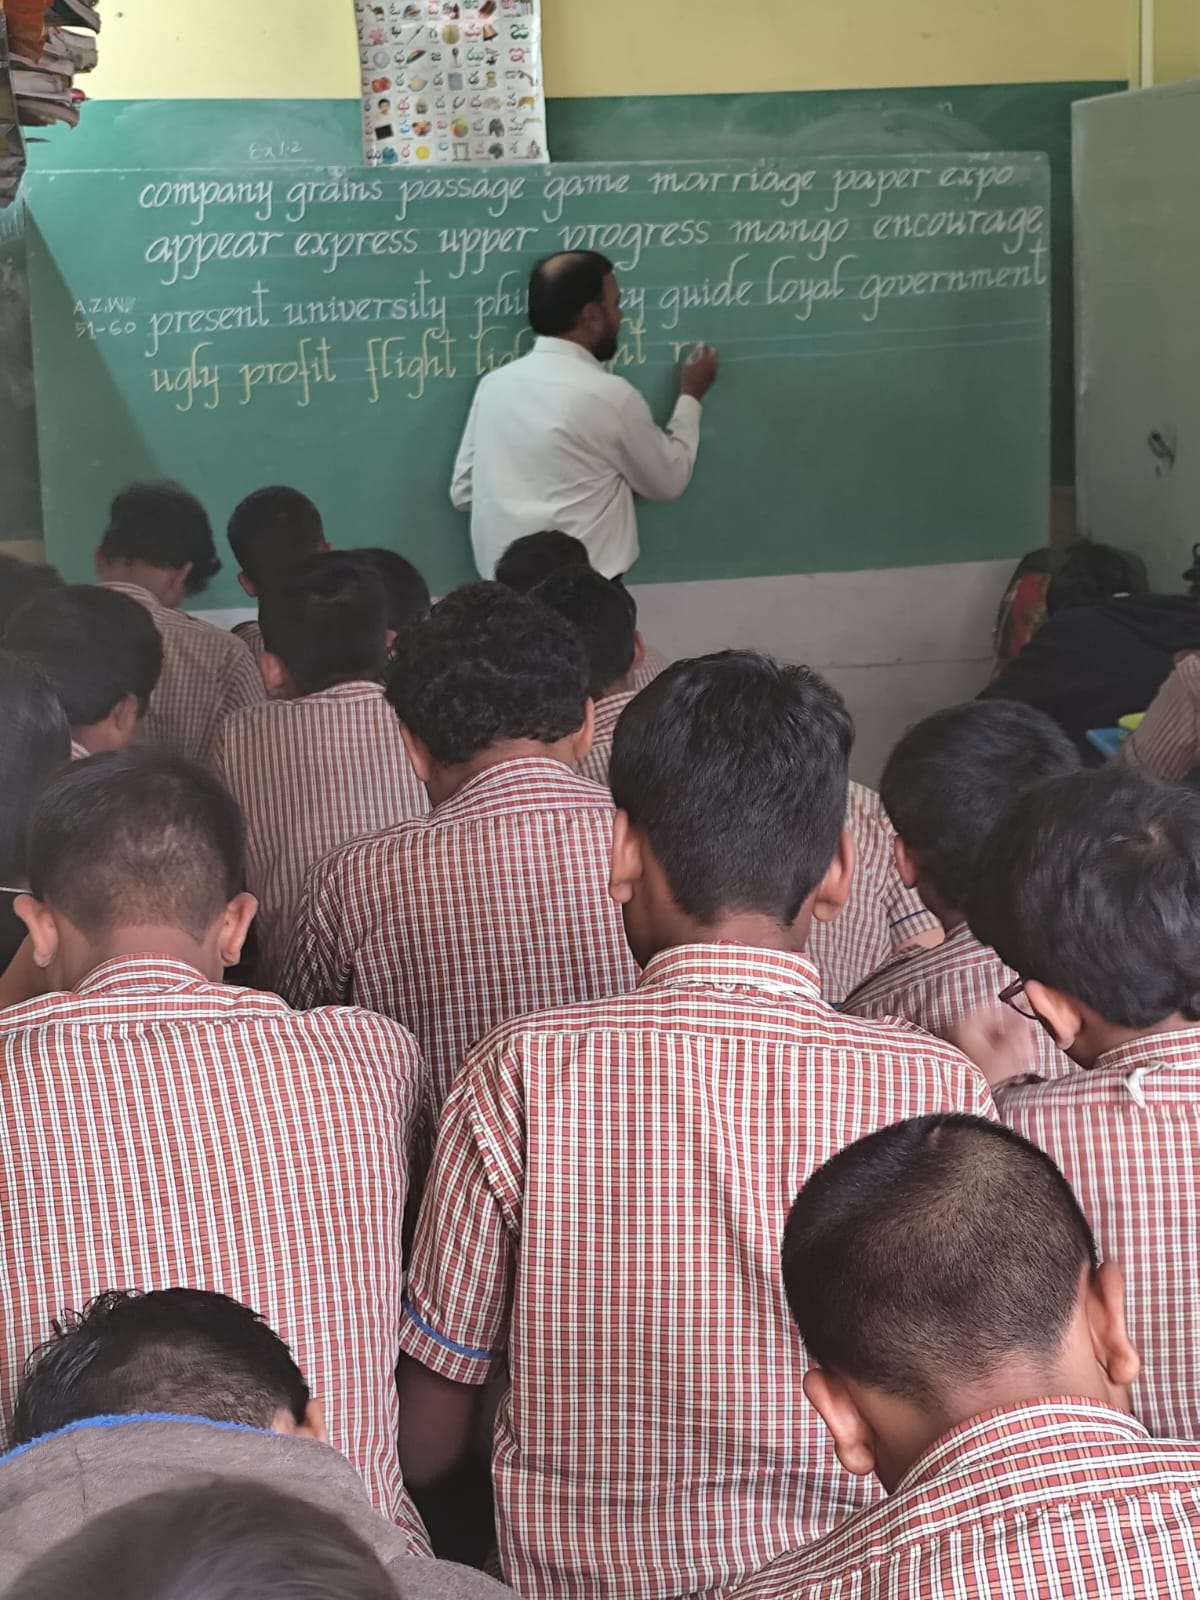 Ex 1.2
company grains passage game marriage paper expo
appear express upper progress mango encourage
A.Z.W.
51-60
present university guide loyal government
ugly profit flight